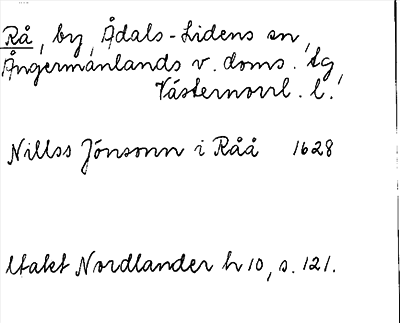 Rå, by, Ådals-Lidens sn,
Ångermanlands v. doms. tg,
Västernorrl. l.
Nillss Jönsonn i Råå 1628
Utakt Nordlander h 10, s. 121.